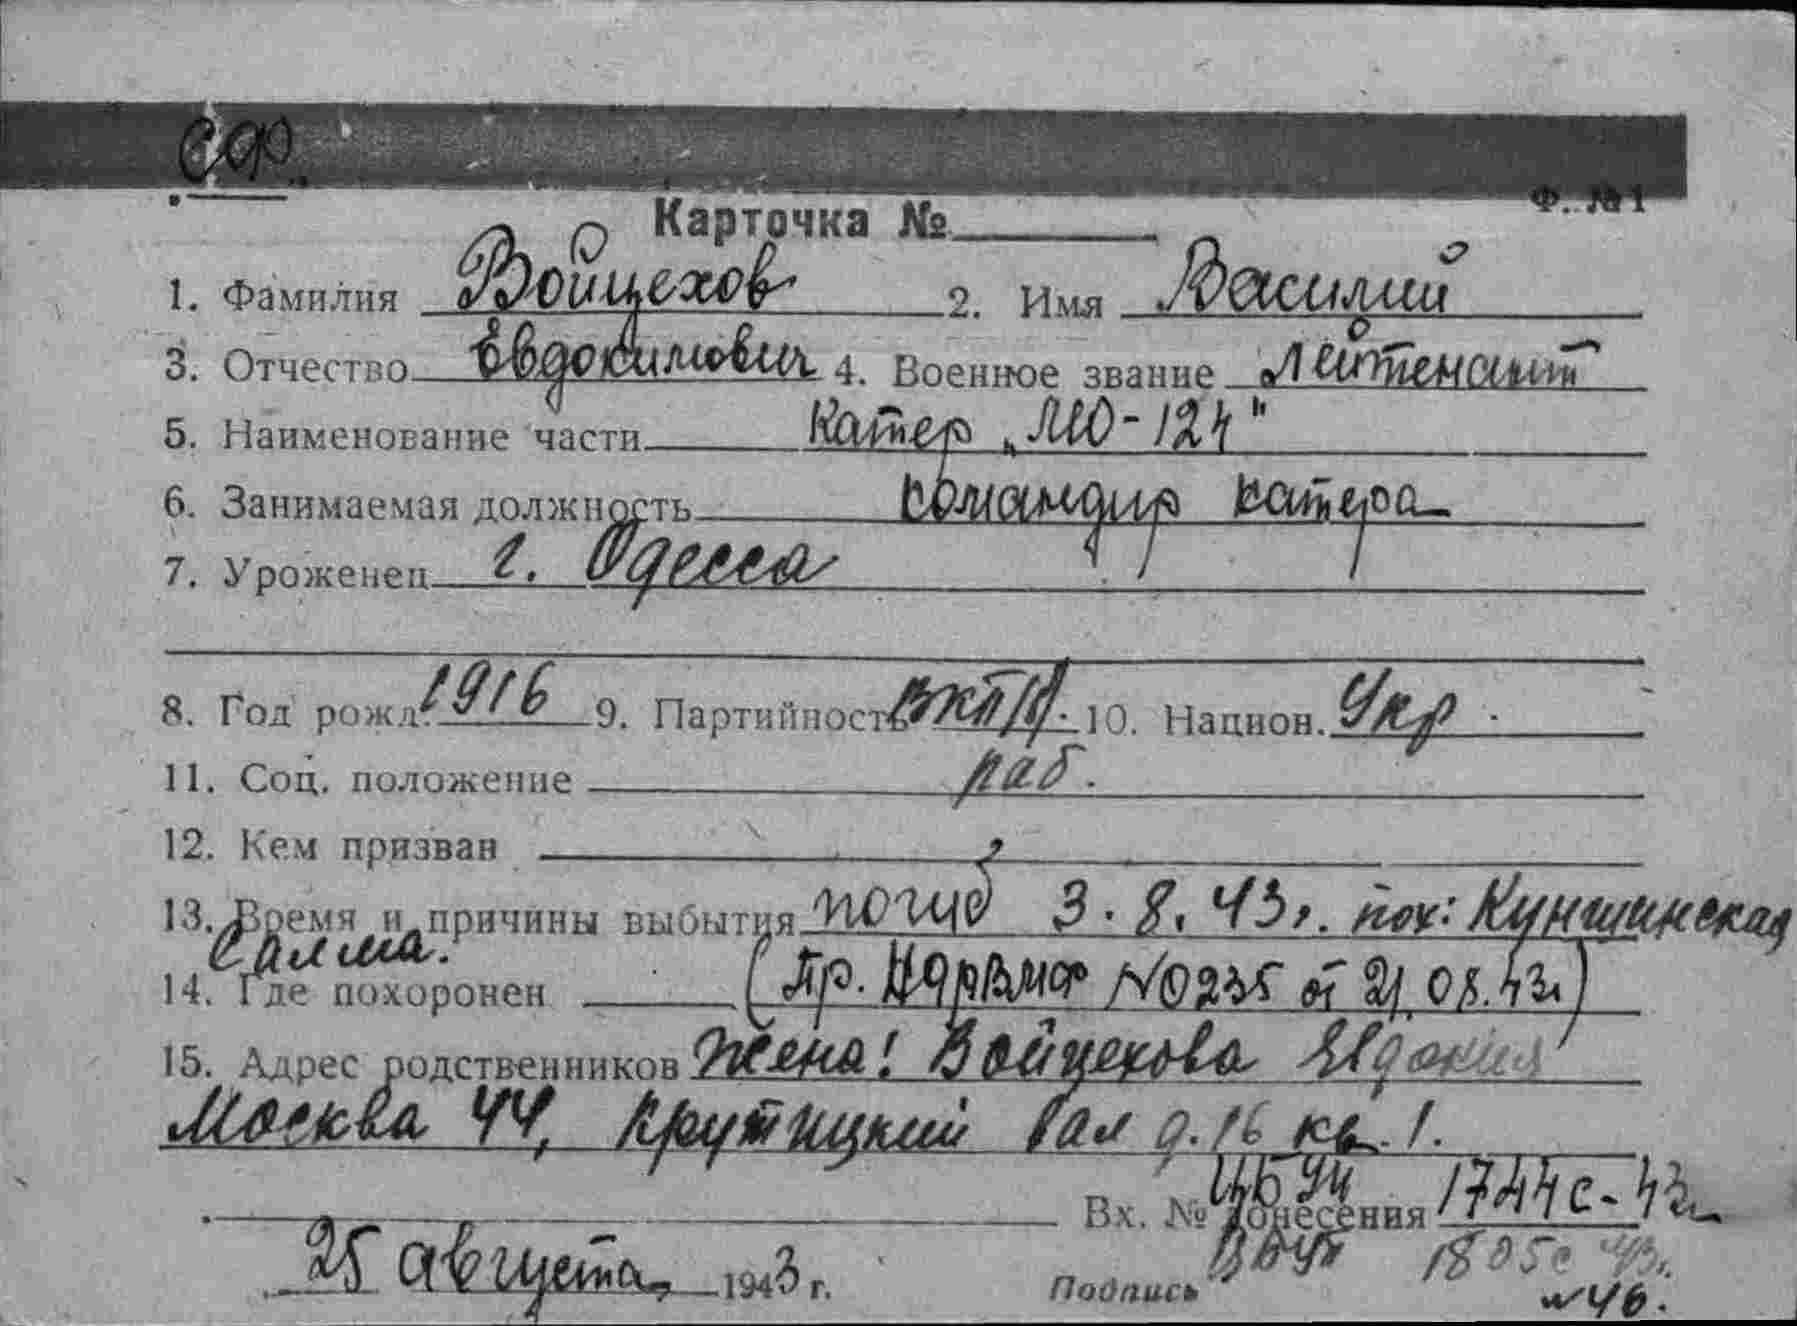 СФ.
Ф. № 1
Карточка №
1. Фамилия Войцехов 2. Имя Василий
3. Отчество Евдокимович 4. Военное звание лейтенант
5. Наименование части катер „МО-124"
6. Занимаемая должность командир катера
7. Уроженец г. Одесса
8. Год рожд. 1916 9. Партийность ВКП/б/. 10. Национ. Укр.
11. Соц. положение раб.
12. Кем призван
13. Время и причины выбытия погиб 3.8.43г. пох: Куншинская
Салма.
14. Где похоронен (Пр. НарВМФ № 0235 от 21.08.43г)
15. Адрес родственников Жена: Войцехова Евдокия
Москва 44, Крутицкий вал д. 16 кв. 1.
Вх. № донесения 1744с-43г
25 августа 1943 г. Подпись 1805с 43г.
№ 46.